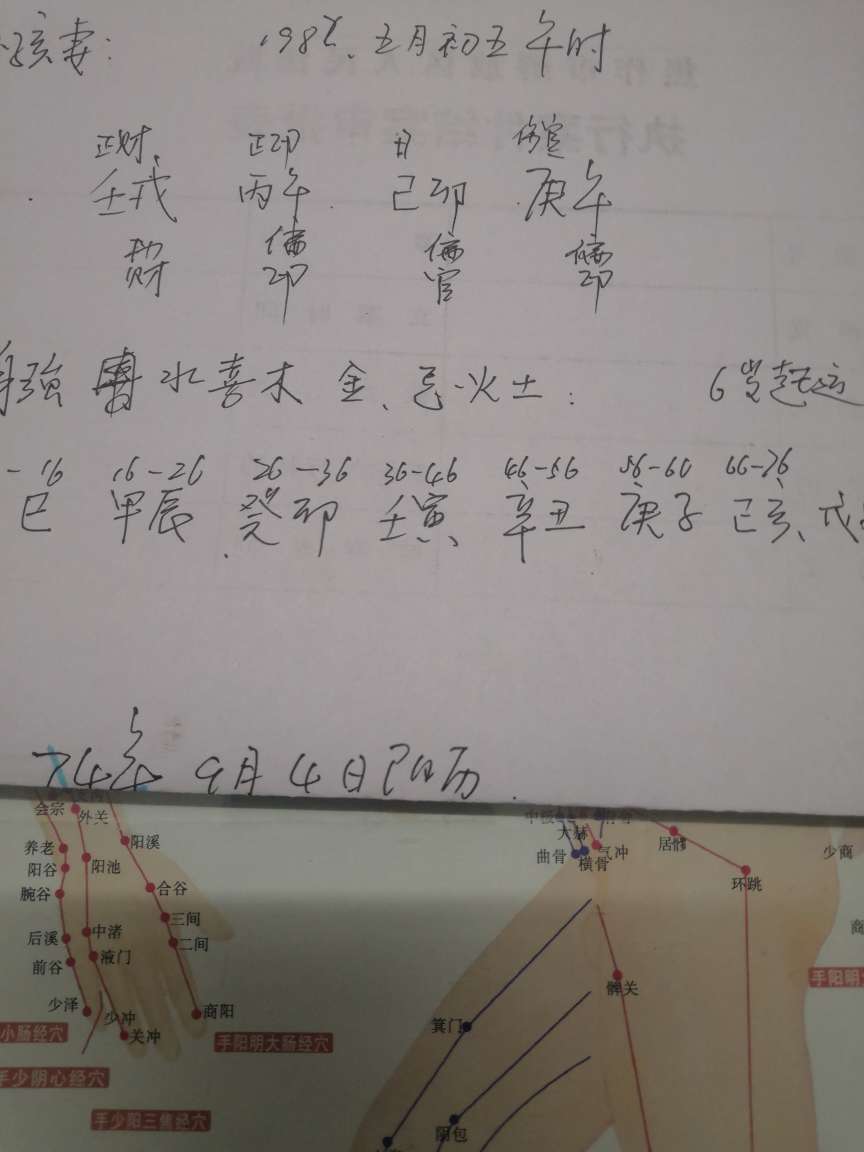 孩妻： 1982、五月初五午时
正财 正印 日 伤官
壬戌 丙午 己卯 庚午
劫财 偏印 偏官 偏印
身强 水喜木 金、忌火土： 6岁起运
-16 16-26 26-36 36-46 46-56 56-60 66-76
巳 甲辰 癸卯 壬寅、 辛丑 庚子 己亥、戊
74年 9月4日阳历
会宗 外关
养老 阳溪
阳谷 阳池
腕谷 合谷
三间
后溪 中渚 二间
前谷 液门
少泽 少冲 商阳
关冲
小肠经穴 手阳明大肠经穴
手少阴心经穴
手少阳三焦经穴
中极
大赫 气冲 居髎 少商
曲骨 横骨
环跳
髀关 手阳明
箕门
阴包